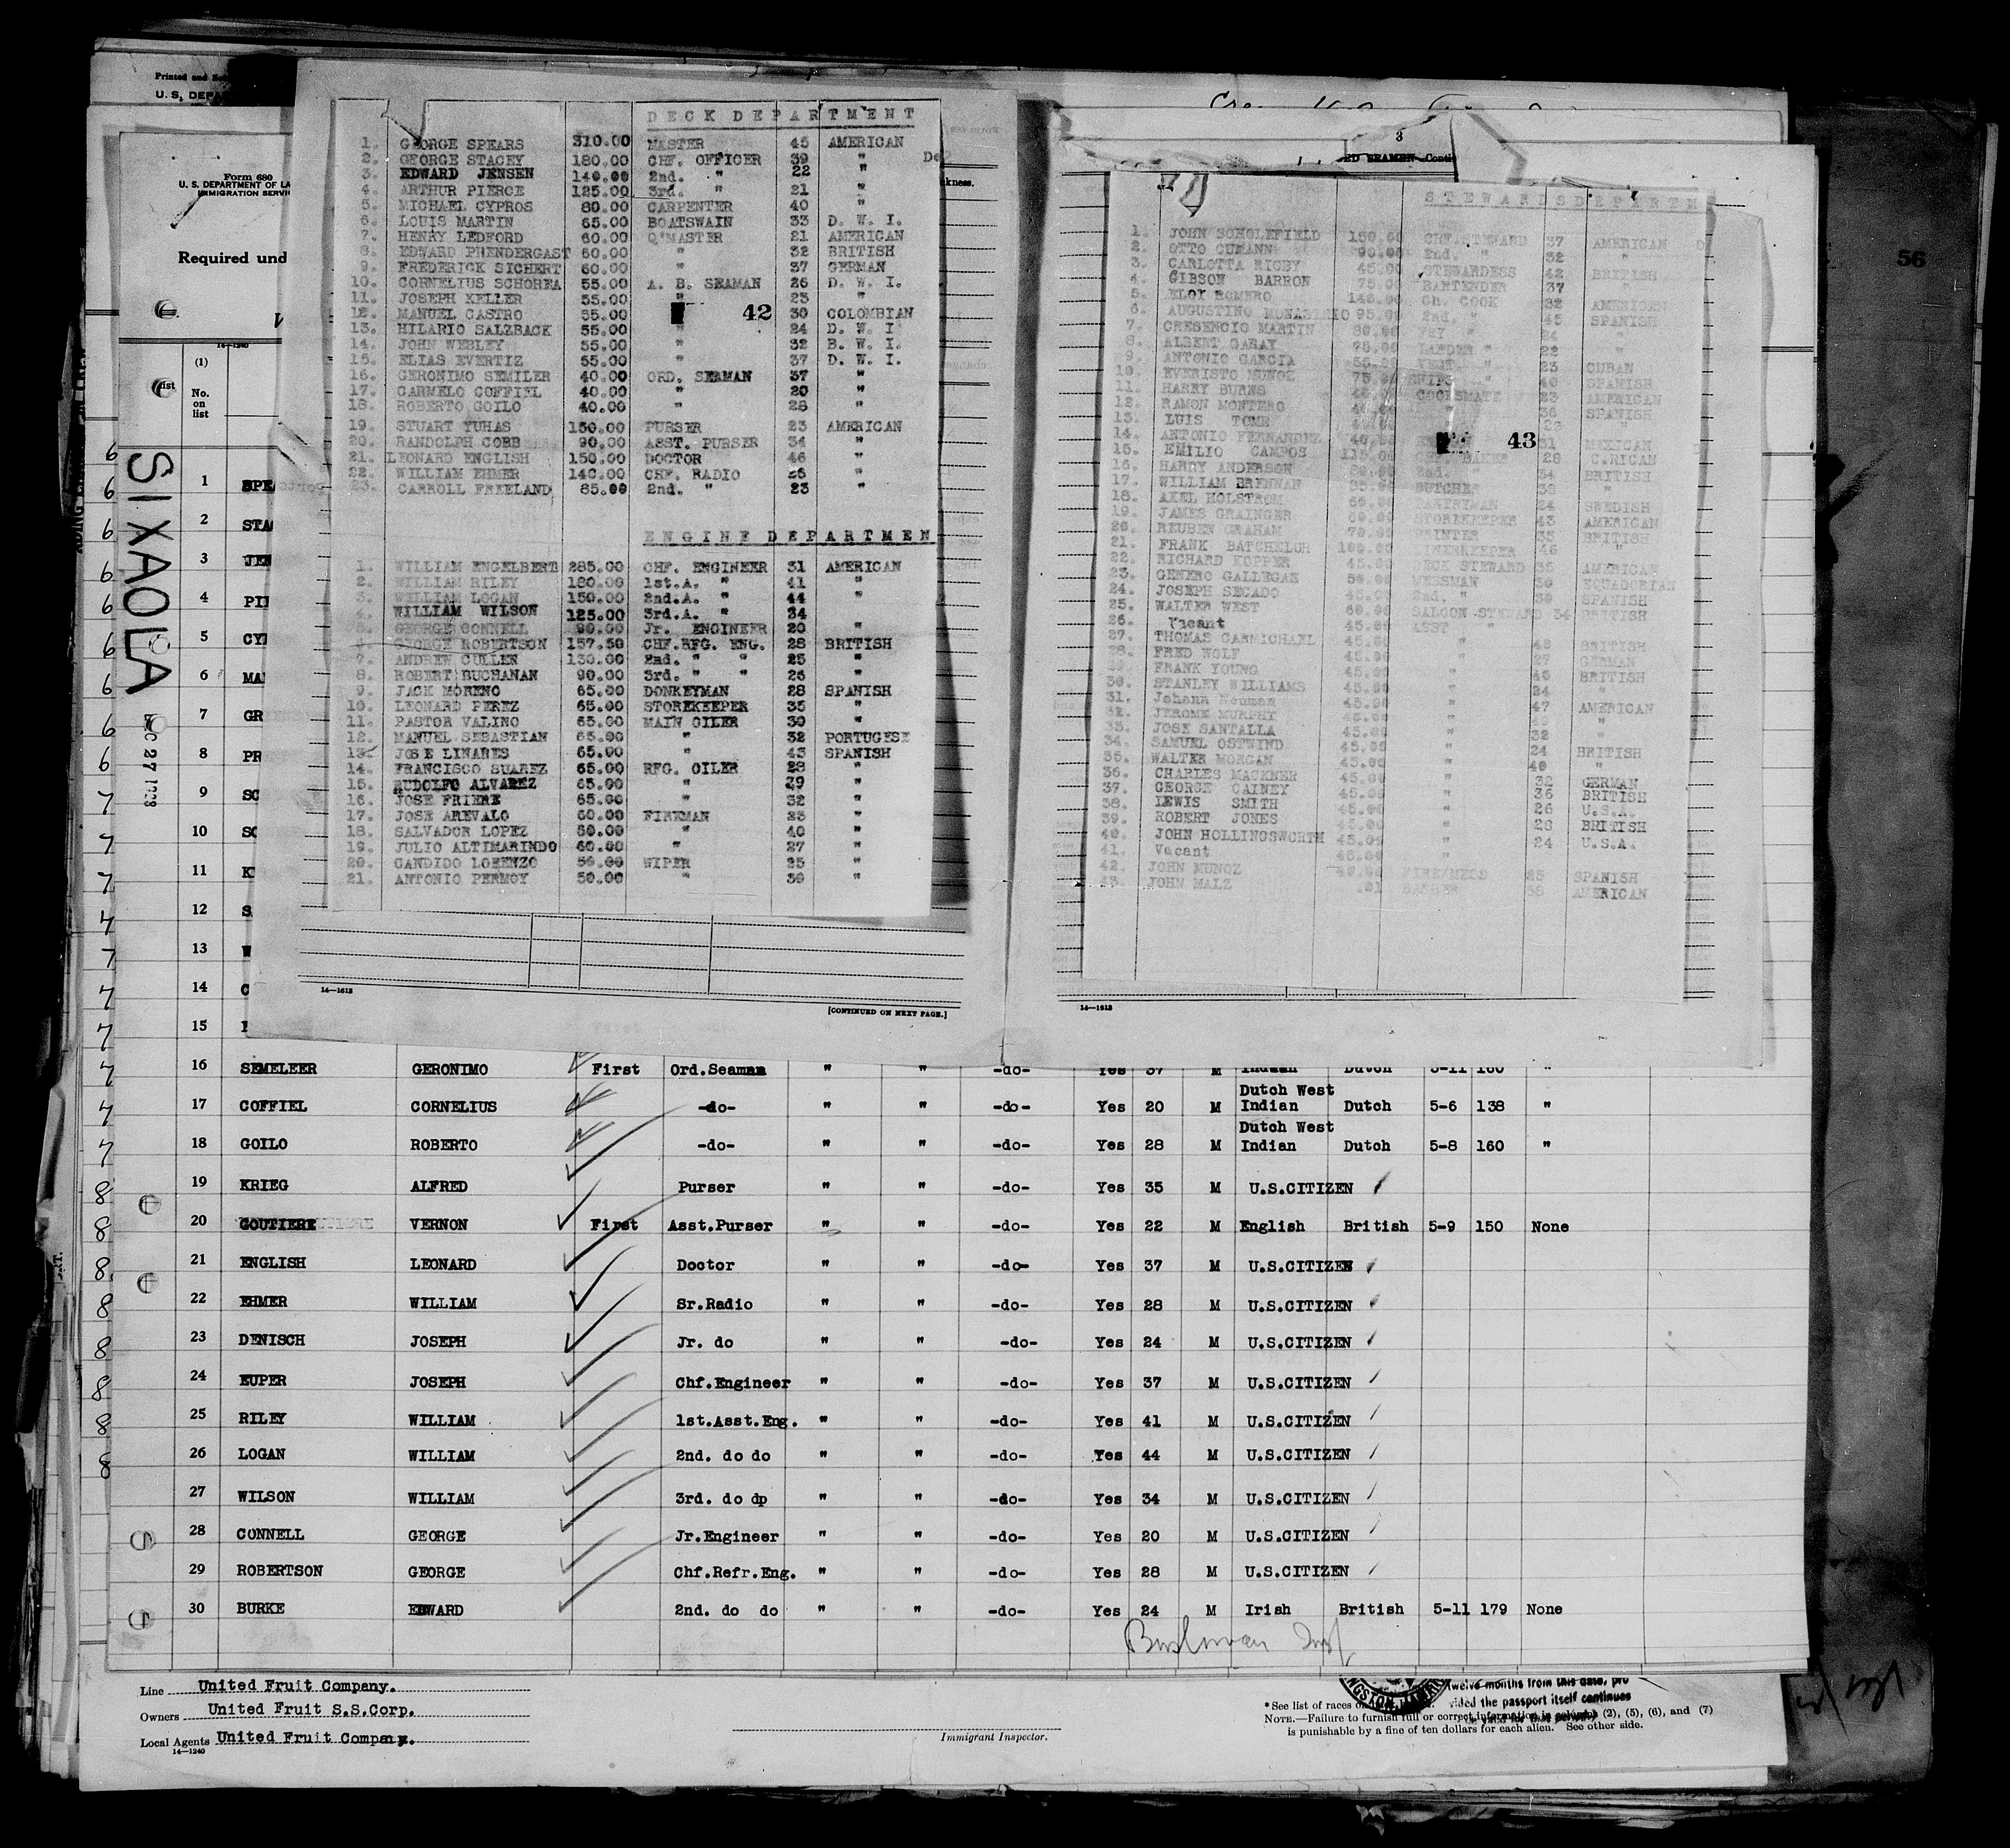 Printed and
U. S. DEPA
Form 680
U. S. DEPARTMENT OF LA
IMMIGRATION SERVI
Required und
14-1240
(1)
No.
on
list
SIXAOLA
56
DECK DEPARTMENT
1. GEORGE SPEARS 310.00 MASTER 45 AMERICAN
2. GEORGE STACEY 180.00 CHF. OFFICER 39 "
3. EDWARD JENSEN 140.00 2nd. " 22 "
4. ARTHUR PIERCE 125.00 3rd. " 21 "
5. MICHAEL CYPROS 80.00 CARPENTER 40 "
6. LOUIS MARTIN 65.00 BOATSWAIN 33 D. W. I.
7. HENRY LEDFORD 60.00 Q'MASTER 21 AMERICAN
8. EDWARD PHENDERGAST 60.00 " 32 BRITISH
9. FREDERICK SICHERT 60.00 " 37 GERMAN
10. CORNELIUS SCHOREA 55.00 A. B. SEAMAN 26 D. W. I.
11. JOSEPH KELLER 55.00 " 23 "
12. MANUEL CASTRO 55.00 42 30 COLOMBIAN
13. HILARIO SALZBACK 55.00 " 24 D. W. I
14. JOHN WEBLEY 55.00 " 32 B. W. I.
15. ELIAS EVERTIZ 55.00 " 37 D. W. I.
16. GERONIMO SEMILER 40.00 ORD. SEAMAN 37 "
17. CARMELO COFFIEL 40.00 " 20 "
18. ROBERTO GOILO 40.00 " 28 "
19. STUART YUHAS 150.00 PURSER 23 AMERICAN
20. RANDOLPH COBB 90.00 ASST. PURSER 34 "
21. LEONARD ENGLISH 150.00 DOCTOR 46 "
22. WILLIAM EHMER 140.00 CHF. RADIO 28 "
23. CARROLL FREELAND 85.00 2nd. " 23 "
ENGINE DEPARTMEN
1. WILLIAM ENGELBERT 285.00 CHF. ENGINEER 31 AMERICAN
2. WILLIAM RILEY 180.00 1st.A. " 41 "
3. WILLIAM LOGAN 150.00 2nd.A. " 44 "
4. WILLIAM WILSON 125.00 3rd.A. " 34
5. GEORGE CONNELL 90.00 Jr. ENGINEER 20 "
GEORGE ROBERTSON 157.50 CHF.RFG. ENG. 28 BRITISH
7. ANDREW CULLEN 130.00 2nd. " " 25 "
8. ROBERT BUCHANAN 90.00 3rd. " " 26 "
9. JACK MORENO 65.00 DONKEYMAN 28 SPANISH
10. LEONARD PEREZ 65.00 STOREKEEPER 35 "
11. PASTOR VALINO 65.00 MAIN OILER 30 "
12. MANUEL SEBASTIAN 65.00 " 32 PORTUGESE
13. JOSE LINARES 65.00 " 43 SPANISH
14. FRANCISCO SUAREZ 65.00 RFG. OILER 28 "
15. RUDOLFO ALVAREZ 65.00 " 29 "
16. JOSE FRIERE 65.00 " 32 "
17. JOSE AREVALO 60.00 FIREMAN 23 "
18. SALVADOR LOPEZ 60.00 " 40 "
19. JULIO ALTIMARINDO 60.00 " 27 "
20. CANDIDO LORENZO 50.00 WIPER 25 "
21. ANTONIO PERMOY 50.00 " 30 "
14-1613
[CONTINUED ON NEXT PAGE.]
3
ED SEAMEN-Conti
STEWARDS DEPARTM
1. JOHN SCHOLEFIELD 150.00 CHF.STEWARD 37 AMERICAN
2. OTTO CUMANN 90.00 2nd. " 32 "
3. CARLOTTA RIGBY 45.00 STEWARDESS 42 BRITISH
4. GIBSON BARRON 75.00 BARTENDER 37 "
5. ELOY ROMERO 140.00 CH. COOK 32 AMERICAN
6. AUGUSTINO MONASIRIO 95.00 2nd. " 45 SPANISH
7. CRESENCIO MARTIN 80.00 FRY " 24 "
8. ALBERT GARAY 75.00 LARDER " 22 "
9. ANTONIO GARCIA VEGT. " 23 CUBAN
10. EVERISTO MUNOZ 75.00 40 SPANISH
11. HARRY BURNS COOKSMATE 23 AMERICAN
12. RAMON MONTERO 36 SPANISH
13. LUIS TOME 23 "
14. ANTONIO FERNANDEZ 43 31 MEXICAN
15. EMILIO CAMPOS 115.00 BAKER 28 C.RICAN
16. HARDY ANDERSON 2nd. " 34 BRITISH
17. WILLIAM BRENNAN BUTCHER 38 "
18. AXEL HOLSTROM 60.00 PANTRYMAN 24 SWEDISH
19. JAMES GRAINGER 60.00 STOREKEEPER 43 AMERICAN
20. REUBEN GRAHAM 70.00 PRINTER 35 BRITISH
21. FRANK BATCHELOR 100.00 LINENKEEPER 46 "
22. RICHARD KOPPER 45.00 DECK STEWARD 35 AMERICAN
23. GENERO GALLEGAS 50.00 MESSMAN 30 EQUADORIAN
24. JOSEPH SECADO 45.00 2nd. " 30 SPANISH
25. WALTER WEST 60.00 SALOON STEWARD 34 BRITISH
26. Vacant 45.00 ASST "
27. THOMAS CARMICHAEL 45.00 " 48 BRITISH
28. FRED WOLF 45.00 " 27 GERMAN
29. FRANK YOUNG 45.00 40 BRITISH
30. STANLEY WILLIAMS 45.00 " 24 "
31. Johann Neuman 45.00 " 47 AMERICAN
32. JEROME MURPHY 45.00 " "
33. JOSE SANTALLA 45.00 " 32 "
34. SAMUEL OSTWIND 45.00 " 24 BRITISH
35. WALTER MORGAN 45.00 " 40 "
36. CHARLES MACKNER 45.00 " 32 GERMAN
37. GEORGE CAINEY 45.00 " 36 BRITISH
38. LEWIS SMITH 45.00 " 26 U.S.A.
39. ROBERT JONES 45.00 " 28 BRITISH
40. JOHN HOLLINGSWORTH 45.00 " 24 U.S.A.
41. Vacant 45.00 "
42. JOHN MUNOZ 40.00 FIRE/MESS 25 SPANISH
43. JOHN MALZ .01 BARBER 58 AMERICAN
14-1613
1 SPE
2 STA
3 JEN
4 PI
5 CY
6 MA
7 GR
8 PR
9 SC
10 SC
11 K
12 S
13 W
14 C
15
16 SEMELEER GERONIMO First Ord.Seaman " " -do- Yes 37 M Indian Dutch 5-11 160 "
17 COFFIEL CORNELIUS -do- " " -do- Yes 20 M Dutch West Indian Dutch 5-6 138 "
18 GOILO ROBERTO -do- " " -do- Yes 28 M Dutch West Indian Dutch 5-8 160 "
19 KRIEG ALFRED Purser " " -do- Yes 35 M U.S.CITIZEN
20 GOUTIERE VERNON First Asst.Purser " " -do- Yes 22 M English British 5-9 150 None
21 ENGLISH LEONARD Doctor " " -do- Yes 37 M U.S.CITIZEN
22 EHMER WILLIAM Sr.Radio " " -do- Yes 28 M U.S.CITIZEN
23 DENISCH JOSEPH Jr. do " " -do- Yes 24 M U.S.CITIZEN
24 EUPER JOSEPH Chf.Engineer " " -do- Yes 37 M U.S.CITIZEN
25 RILEY WILLIAM 1st.Asst.Eng. " " -do- Yes 41 M U.S.CITIZEN
26 LOGAN WILLIAM 2nd. do do " " -do- Yes 44 M U.S.CITIZEN
27 WILSON WILLIAM 3rd. do dp " " -do- Yes 34 M U.S.CITIZEN
28 CONNELL GEORGE Jr.Engineer " " -do- Yes 20 M U.S.CITIZEN
29 ROBERTSON GEORGE Chf.Refr.Eng. " " -do- Yes 28 M U.S.CITIZEN
30 BURKE EDWARD 2nd. do do " " -do- Yes 24 M Irish British 5-11 179 None
Line United Fruit Company.
Owners United Fruit S.S.Corp.
Local Agents United Fruit Company.
14-1240
Immigrant Inspector.
twelve months from this date, pro
vided the passport itself continues
*See list of races
NOTE.—Failure to furnish full or correct information in columns (2), (5), (6), and (7)
is punishable by a fine of ten dollars for each alien. See other side.